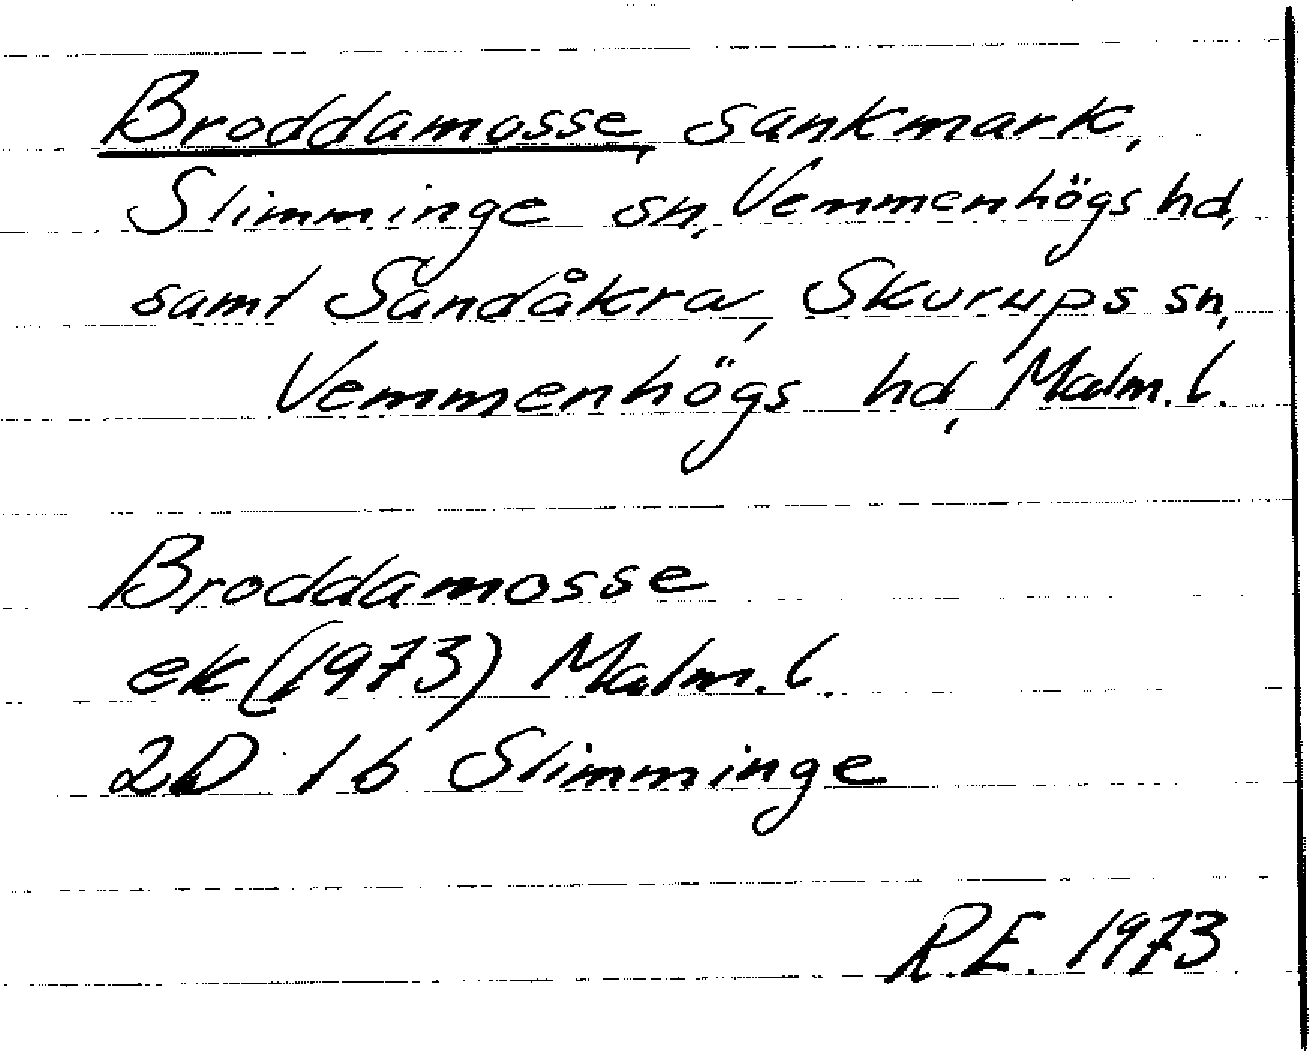 Broddamosse, sankmark,
Slimminge sn, Vemmenhögs hd,
samt Sandåkra, Skurups sn,
Vemmenhögs hd, Malm. l.
Broddamosse
ek (1973) Malm. l.
2D 1b Slimminge
R.E. 1973